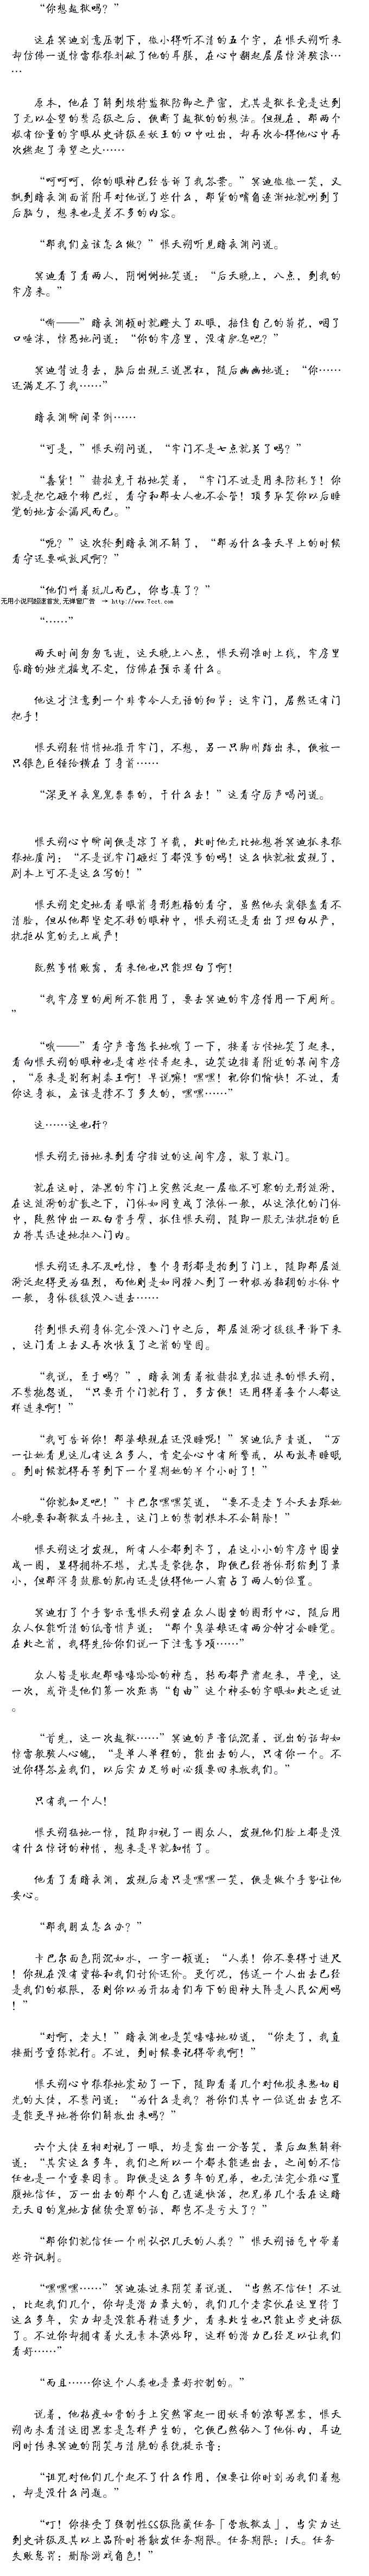 “你想越狱吗？”
这在冥迪刻意压制下，微小得听不清的五个字，在恨天朔听来
却仿佛一道惊雷狠狠刺破了他的耳膜，在心中翻起层层惊涛骇浪…
…
原本，他在了解到埃特监狱防御之严密，尤其是狱长竟是达到
了无以企望的禁忌级之后，便断了越狱的的想法。但现在，那两个
极有份量的字眼从史诗级巫妖王的口中吐出，却再次令得他心中再
次燃起了希望之火……
“呵呵呵，你的眼神已经告诉了我答案。”冥迪微微一笑，又
飘到暗夜渊面前附耳对他说了些什么，那货的嘴角逐渐地就咧到了
后脑勺，想来也是差不多的内容。
“那我们应该怎么做？”恨天朔听见暗夜渊问道。
冥迪看了看两人，阴恻恻地笑道：“后天晚上，八点，到我的
牢房来。”
“嘶——”暗夜渊顿时就瞪大了双眼，捂住自己的菊花，咽了
口唾沫，惊恐地问道：“你的牢房里，没有肥皂吧？”
冥迪背过身去，脑后出现三道黑杠，随后幽幽地道：“你……
还满足不了我……”
暗夜渊瞬间晕倒……
“可是，”恨天朔问道，“牢门不是七点就关了吗？”
“蠢货！”赫拉克干枯地笑着，“牢门不过是用来防耗子！你
就是把它砸个稀巴烂，看守和那女人也不会管！顶多耻笑你以后睡
觉的地方会漏风而已。”
“呃？”这次轮到暗夜渊不解了，“那为什么每天早上的时候
看守还要喊放风啊？”
“他们叫着玩儿而已，你当真了？”
无用小说网超速首发,无弹窗广告 → http://www.7cct.com
“……”
两天时间匆匆飞逝，这天晚上八点，恨天朔准时上线，牢房里
昏暗的烛光摇曳不定，仿佛在预示着什么。
他这才注意到一个非常令人无语的细节：这牢门，居然还有门
把手！
恨天朔轻悄悄地推开牢门，不想，另一只脚刚踏出来，便被一
只银色巨锤给横在了身前……
“深更半夜鬼鬼祟祟的，干什么去！”这看守厉声喝问道。
恨天朔心中瞬间便是凉了半截，此时他无比地想将冥迪抓来狠
狠地质问：“不是说牢门砸烂了都没事的吗！这么快就被发现了，
剧本上可不是这么写的！”
恨天朔定定地看着眼前身形魁梧的看守，虽然他头戴银盔看不
清脸，但从他那坚定不移的眼神中，恨天朔还是看出了坦白从严，
抗拒从宽的无上威严！
既然事情败露，看来他也只能坦白了啊！
“我牢房里的厕所不能用了，要去冥迪的牢房借用一下厕所。
”
“哦——”看守声音悠长地哦了一下，接着古怪地笑了起来，
看向恨天朔的眼神也是有些怪异起来，边笑边指着附近的某间牢房
，“原来是别有刺基王啊！早说嘛！嘿嘿！祝你们愉快！不过，看
你这身板，应该是撑不了多久的，嘿嘿……”
这……这也行？
恨天朔无语地来到看守指过的这间牢房，敲了敲门。
就在这时，漆黑的牢门上突然泛起一层微不可察的无形涟漪，
在这涟漪的扩散之下，门体如同变成了液体一般，从这液化的门体
中，陡然伸出一双白骨手臂，抓住恨天朔，随即一股无法抗拒的巨
力将其迅速地扯入门内。
恨天朔还来不及吃惊，整个身形都是拍到了门上，随即那层涟
漪泛起得更为猛烈，而他则是如同撞入到了一种极为黏稠的水体中
一般，身体缓缓没入进去……
待到恨天朔身体完全没入门中之后，那层涟漪才缓缓平静下来
，这门看上去又再次恢复了之前的坚固。
“我说，至于吗？”，暗夜渊看着被赫拉克拉进来的恨天朔，
不禁抱怨道，“只要开个门就行了，多方便！还用得着每个人都这
样进来啊！”
“我可告诉你！那婆娘现在还没睡呢！”冥迪低声责道，“万
一让她看见这儿有这么多人，肯定会心中有所警戒，从而放弃睡眠
。到时候就得再等到下一个星期她的半个小时了！”
“你就知足吧！”卡巴尔嘿嘿笑道，“要不是老子今天去跟她
今晚要和新狱友斗地主，这门上的禁制根本不会解除！”
恨天朔这才发现，所有人全都到齐了，在这小小的牢房中围坐
成一圈，显得拥挤不堪，尤其是蒙德尔，即便已经将体形缩到了最
小，但那浑身鼓胀的肌肉还是使得他一人霸占了两人的位置。
冥迪打了个手势示意恨天朔坐在众人围坐的圆形中心，随后用
众人仅能听清的低音悄声道：“那个臭婆娘还有两分钟才会睡觉。
在此之前，我得先给你们说一下注意事项……”
众人皆是收起那嘻嘻哈哈的神态，转而都严肃起来，毕竟，这
一次，或许是他们第一次距离“自由”这个神圣的字眼如此之近过
。
“首先，这一次越狱……”冥迪的声音低沉着，说出的话却如
惊雷般骇人心魄，“是单人单程的，能出去的人，只有你一个。不
过你得答应我们，以后实力足够时必须要回来救我们。”
只有我一个人！
恨天朔猛地一惊，随即扫视了一圈众人，发现他们脸上都是没
有什么惊讶的神情，想来是早就知情了。
他看了看暗夜渊，发现后者只是嘿嘿一笑，便是做个手势让他
安心。
“那我朋友怎么办？”
卡巴尔面色阴沉如水，一字一顿道：“人类！你不要得寸进尺
！你现在没有资格和我们讨价还价。更何况，传送一个人出去已经
是我们的极限，否则你以为开拓者们布下的困神大阵是人民公厕吗
！”
“对啊，老大！”暗夜渊也是笑嘻嘻地劝道，“你走了，我直
接删号重练就行。不过，到时候要记得带我啊！”
恨天朔心中狠狠地震动了一下，随即看着几个对他投来热切目
光的大佬，不禁问道：“为什么是我？将你们其中一位送出去岂不
是能更早地将你们解救出来吗？”
六个大佬互相对视了一眼，均是露出一分苦笑，最后血煞解释
道：“其实这么多年，我们之所以一个都未能逃出去，之间的不信
任也是一个重要因素。即便是这么多年的兄弟，也无法完全推心置
腹地信任，万一出去的那个人自己逍遥快活，把兄弟几个丢在这暗
无天日的鬼地方继续受罪的话，那岂不是亏大了？”
“那你们就信任一个刚认识几天的人类？”恨天朔语气中带着
些许讽刺。
“嘿嘿嘿……”冥迪凑过来阴笑着说道，“当然不信任！不过
，比起我们几个，你却是潜力最大的，我们几个老家伙在这里待了
这么多年，实力却是没能再精进多少，看来此生也只能止步史诗级
了。不过你却拥有着火元素本源烙印，这样的潜力已经足以让我们
看好……”
“而且……你这个人类也是最好控制的。”
说着，他枯瘦如骨的手上突然窜起一团妖异的浓郁黑雾，恨天
朔尚未看清这团黑雾是怎样产生的，它便已然钻入了他体内，耳边
同时传来冥迪的阴笑与清脆的系统提示音：
“诅咒对他们几个起不了什么作用，但要让你时刻为我们着想
，却是没什么问题。”
“叮！你接受了强制性SS级隐藏任务「营救狱友」，当实力达
到史诗级及其以上品阶时将触发任务期限。任务期限：1天。任务
失败惩罚：删除游戏角色！”